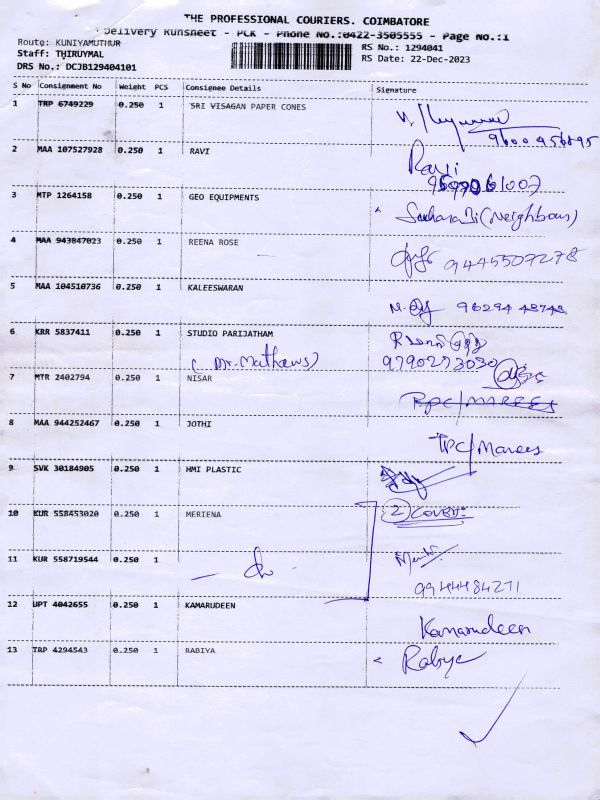 THE PROFESSIONAL COURIERS. COIMBATORE
Delivery Runsheet - PLK - Phone No.:0422-3505555 - Page No.:1
Route: KUNIYAMUTHUR
Staff: THIRUYMAL
DRS No.: DCJB129404101
RS No.: 1294041
RS Date: 22-Dec-2023
S No Consignment No Weight PCS Consignee Details Signature
1 TRP 6749229 0.250 1 SRI VISAGAN PAPER CONES
2 MAA 107527928 0.250 1 RAVI Ravi
3 MTP 1264158 0.250 1 GEO EQUIPMENTS (Neighbour)
4 MAA 943847023 0.250 1 REENA ROSE 9445507278
5 MAA 104510736 0.250 1 KALEESWARAN 96294 48748
6 KRR 5837411 0.250 1 STUDIO PARIJATHAM
(Mr. Mathews) 9790273030
7 MTR 2402794 0.250 1 NISAR
8 MAA 944252467 0.250 1 JOTHI TPC/Marees
9 SVK 30184905 0.250 1 HMI PLASTIC
10 KUR 558453020 0.250 1 MERIENA 2 Cover
11 KUR 558719544 0.250 1 - do
9944484271
12 UPT 4042655 0.250 1 KAMARUDEEN Kamarudeen
13 TRP 4294543 0.250 1 RABIYA Rabiya